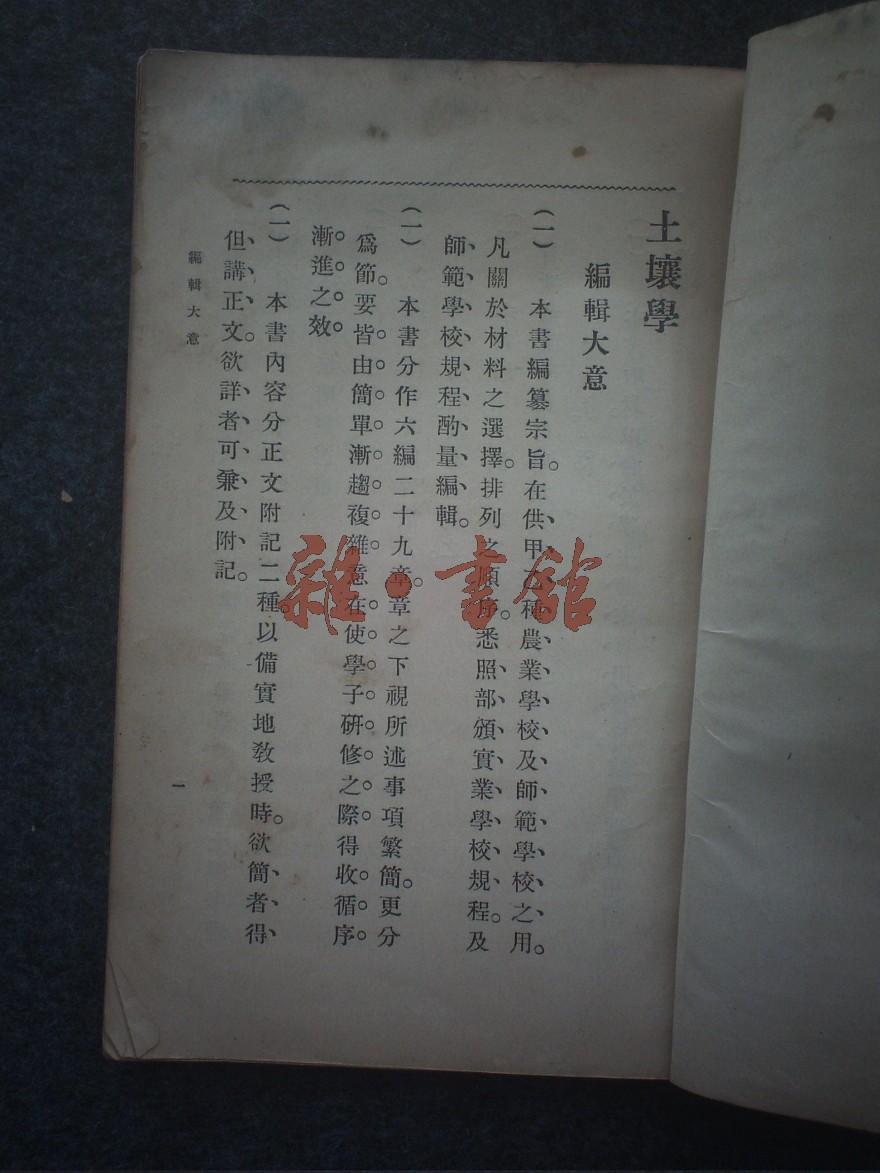 土壤學
編輯大意
(一) 本書編纂宗旨。在供、甲、乙、種、農、業、學、校、及、師、範、學、校、之、用。
凡關於材料之選擇。排列之順序。悉、照、部、頒、實、業、學、校、規、程。及
師、範、學、校、規、程、酌、量、編、輯。
(一) 本書分作六編二十九章。章之下視所述事項繁簡。更分
爲節。要皆由簡單漸趨複雜。意在使學子研修之際得收循序
漸進之效
(一) 本書內容分正文附記二種。以備實地敎授時。欲、簡、者、得、
但、講、正、文。欲、詳、者、可、兼、及、附、記。
編輯大意
一
雜·書館